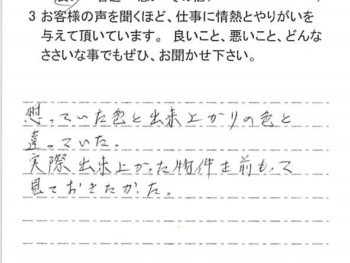 3 お客様の声を聞くほど、仕事に情熱とやりがいを
与えて頂いています。 良いこと、悪いこと、どんな
ささいな事でもぜひ、お聞かせ下さい。
想っていた色と出来上がりの色と
違っていた。
実際出来上がった物件を前もって
見ておきたかった。